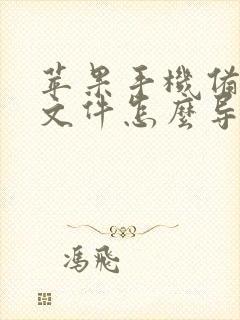 苹果手機備
文件怎麽导
馮飛